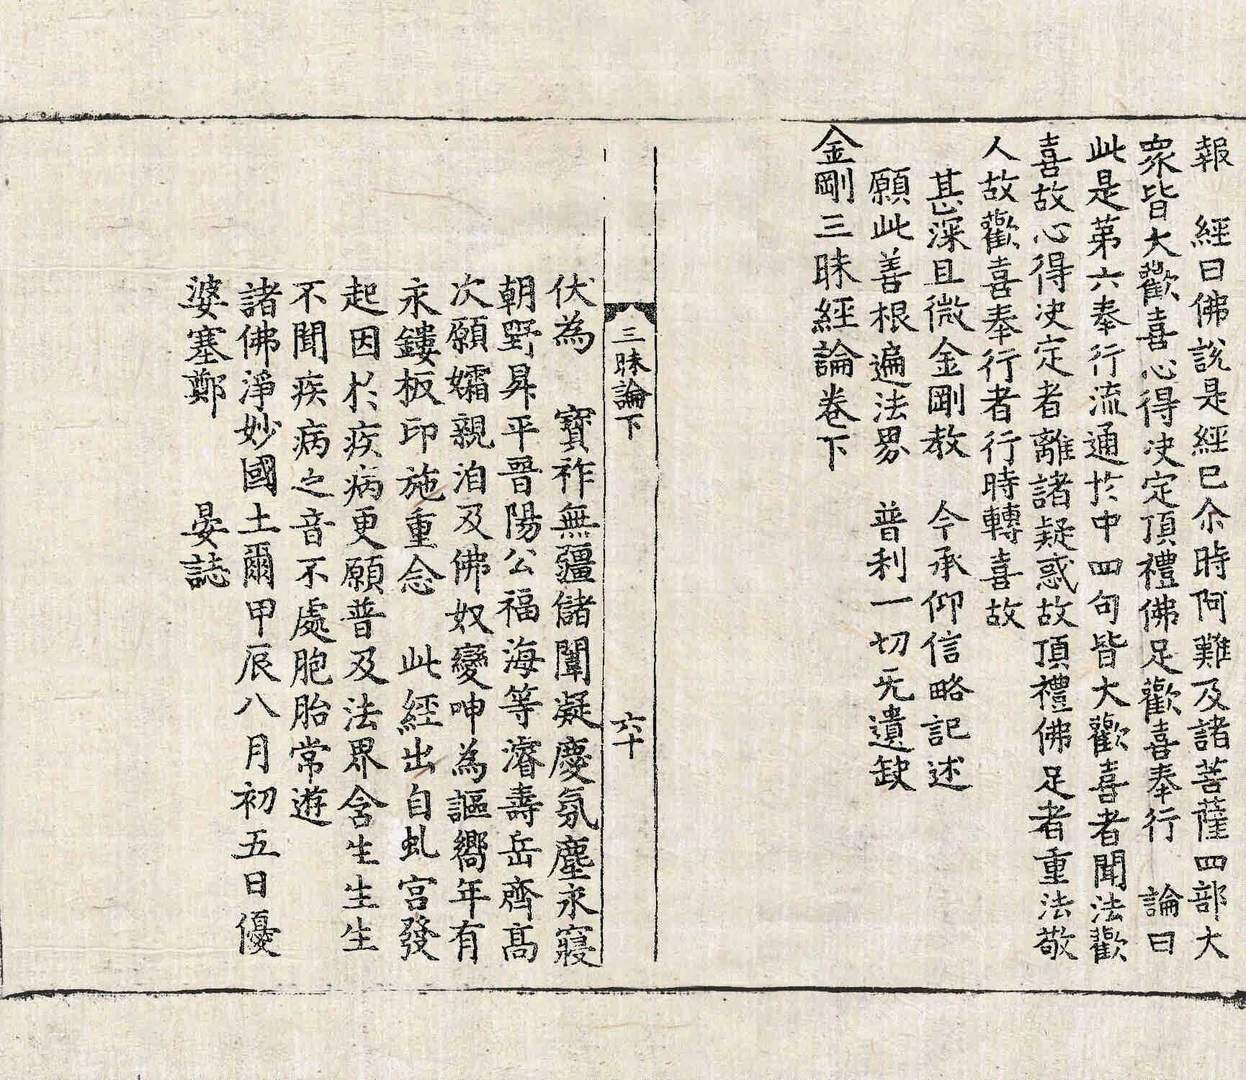 報　經曰佛說是經已尒時阿難及諸菩薩四部大
衆皆大歡喜心得决定頂禮佛足歡喜奉行　論曰
此是第六奉行流通於中四句皆大歡喜者聞法歡
喜故心得决定者離諸疑惑故頂禮佛足者重法敬
人故歡喜奉行者行時轉喜故
甚深且微金剛教　今承仰信略記述
願此善根遍法界　普利一切无遺缺
金剛三昧經論卷下
三昧論下
六十
伏為　寶祚無疆儲闈凝慶氛塵永寢
朝野昇平晋陽公福海等濬壽岳齊高
次願孀親洎及佛奴變呻為謳嚮年有
永鏤板印施重念　此經出自虬宮發
起因於疾病更願普及法界含生生生
不聞疾病之音不處胞胎常遊
諸佛淨妙國土爾甲辰八月初五日優
婆塞鄭　　晏誌